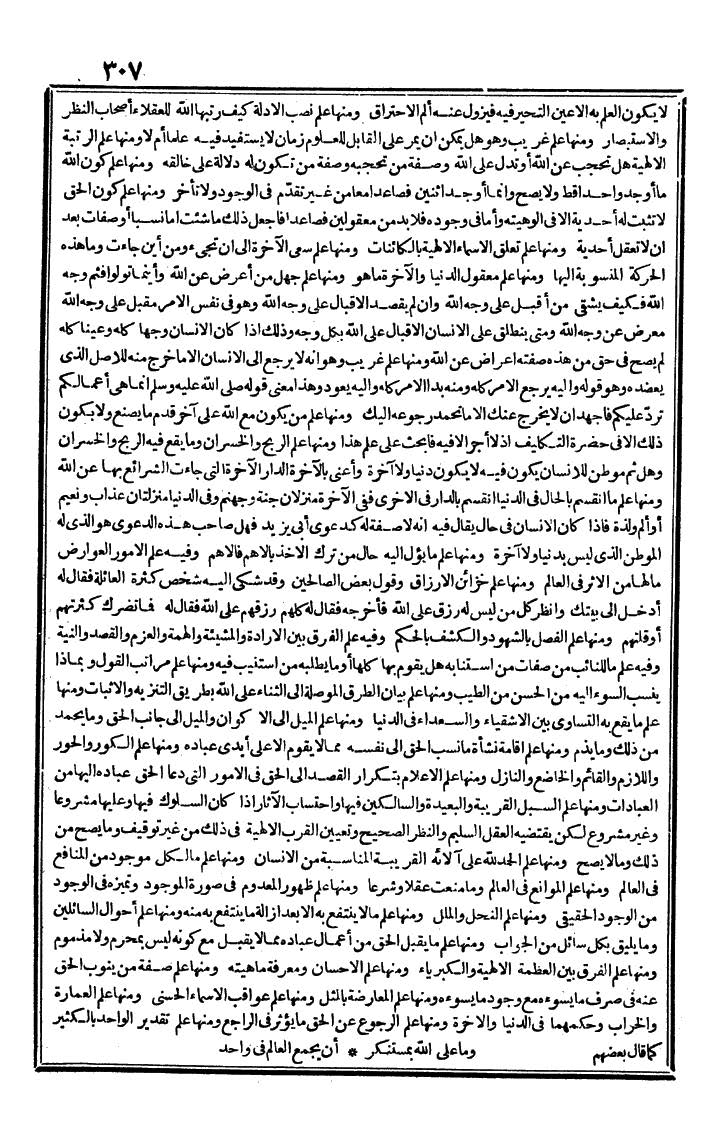 ٣٠٧
لا يكون العلم به الا عين التحير فيه فيزول عنه ألم الاحتراق ومنها علم نصب الادلة كيف رتبها الله للعقلاء أصحاب النظر
والاستبصار ومنها علم غريب وهو هل يمكن ان يمر على القابل للعلوم زمان لا يستفيد فيه علما أم لا ومنها علم الرتبة
الالهية هل تحجب عن الله أو تدل على الله وصفة من تحجبه وصفة من تكون له دلالة على خالقه ومنها علم كون الله
ما أوجد واحدا قط ولا يصح وانما أوجد اثنين فصاعدا معا من غير تقدّم فى الوجود ولا تأخر ومنها علم كون الحق
لا تثبت له أحدية الا فى الوهيته وأما فى وجوده فلا بد من معقولين فصاعدا فاجعل ذلك ما شئت اما نسبا أو صفات بعد
ان لا تعقل أحدية ومنها علم تعلق الاسماء الالهية بالكائنات ومنها علم سعى الآخرة الى ان تجىء ومن أين جاءت وما هذه
الحركة المنسوبة اليها ومنها علم معقول الدنيا والآخرة ما هو ومنها علم جهل من أعرض عن الله وأينما تولوا فثم وجه
الله فكيف يشقى من أقبل على وجه الله وان لم يقصد الاقبال على وجه الله وهو فى نفس الامر مقبل على وجه الله
معرض عن وجه الله ومتى ينطلق على الانسان الاقبال على الله بكل وجه وذلك اذا كان الانسان وجها كله وعينا كله
لم يصح فى حق من هذه صفته اعراض عن الله ومنها علم غريب وهو انه لا يرجع الى الانسان الا ما خرج منه للاصل الذى
يعضده وهو قوله واليه يرجع الامر كله ومنه بدا الامر كله واليه يعود وهذا معنى قوله صلى الله عليه وسلم انما هى أعمالكم
تردّ عليكم فاجهد ان لا يخرج عنك الا ما تحمد رجوعه اليك ومنها علم من يكون مع الله على آخر قدم ما يصنع ولا يكون
ذلك الا فى حضرة التكليف اذ لا أجر الا فيه فابحث على علم هذا ومنها علم الربح والخسران وما يقع فيه الربح والخسران
وهل ثم موطن للانسان يكون فيه لا يكون دنيا ولا آخرة وأعنى بالآخرة الدار الآخرة التى جاءت الشرائع بها عن الله
ومنها علم ما انقسم بالحال فى الدنيا انقسم بالدار فى الاخرى ففى الآخرة منزلان جنة وجهنم وفى الدنيا منزلتان عذاب ونعيم
أو ألم ولذة فاذا كان الانسان فى حال يقال فيه انه لا صفة له كدعوى أبى يزيد فهل صاحب هذه الدعوى هو الذى له
الموطن الذى ليس بدنيا ولا آخرة ومنها علم ما يؤل اليه حال من ترك الاخذ بالاهم فالاهم وفيه علم الامور العوارض
ما لها من الاثر فى العالم ومنها علم خزائن الارزاق وقول بعض الصالحين وقد شكى اليه شخص كثرة العائلة فقال له
أدخل الى بيتك وانظر كل من ليس له رزق على الله فأخرجه فقال له كلهم رزقهم على الله فقال له فما تضرك كثرتهم
أو قلتهم ومنها علم الفصل بالشهود والكشف بالحكم وفيه علم الفرق بين الارادة والمشيئة والهمة والعزم والقصد والنية
وفيه علم ما للنائب من صفات من استنابه هل يقوم بها كلها أو ما يطلبه من استنيب فيه ومنها علم مراتب القول وبماذا
ينسب السوء اليه من الحسن من الطيب ومنها علم بيان الطرق الموصلة الى الثناء على الله بطريق التنزيه والاثبات ومنها
علم ما يقع به التساوى بين الاشقياء والسعداء فى الدنيا ومنها علم الميل الى الاكوان والميل الى جانب الحق وما يحمد
من ذلك وما يذم ومنها علم اقامة نشأة ما نسب الحق الى نفسه مما لا يقوم الا على أيدى عباده ومنها علم الكور والحور
واللازم والقائم والخاضع والنازل ومنها علم الاعلام بتكرار القصد الى الحق فى الامور التى دعا الحق عباده اليها من
العبادات ومنها علم السبل القريبة والبعيدة والسالكين فيها واحتساب الآثار اذا كان السلوك فيها وعليها مشروعا
وغير مشروع لكن يقتضيه العقل السليم والنظر الصحيح وتعيين القرب الالهية فى ذلك من غير توقيف وما يصح من
ذلك وما لا يصح ومنها علم الحمد لله على آلائه القريبة المناسبة من الانسان ومنها علم ما لكل موجود من المنافع
فى العالم ومنها علم الموانع فى العالم وما منعت عقلا وشرعا ومنها علم ظهور المعدوم فى صورة الموجود وتميزه فى الوجود
من الوجود الحقيقى ومنها علم النحل والملل ومنها علم ما لا ينتفع به الا بعد ازالة ما ينتفع به منه ومنها علم أحوال السائلين
وما يليق بكل سائل من الجراب ومنها علم ما يقبل الحق من أعمال عباده مما لا يقبل مع كونه ليس بمحرم ولا مذموم
ومنها علم الفرق بين العظمة الالهية والكبرياء ومنها علم الاحسان ومعرفة ماهيته ومنها علم صفة من ينوب الحق
عنه فى صرف ما يسوءه مع وجود ما يسوءه ومنها علم المعارضة بالمثل ومنها علم عواقب الاسماء الحسنى ومنها علم العمارة
والخراب وحكمهما فى الدنيا والاخرة ومنها علم الرجوع عن الحق ما يؤثر فى الراجع ومنها علم تقدير الواحد بالكثير
كما قال بعضهم وما على الله بمستنكر * أن يجمع العالم فى واحد